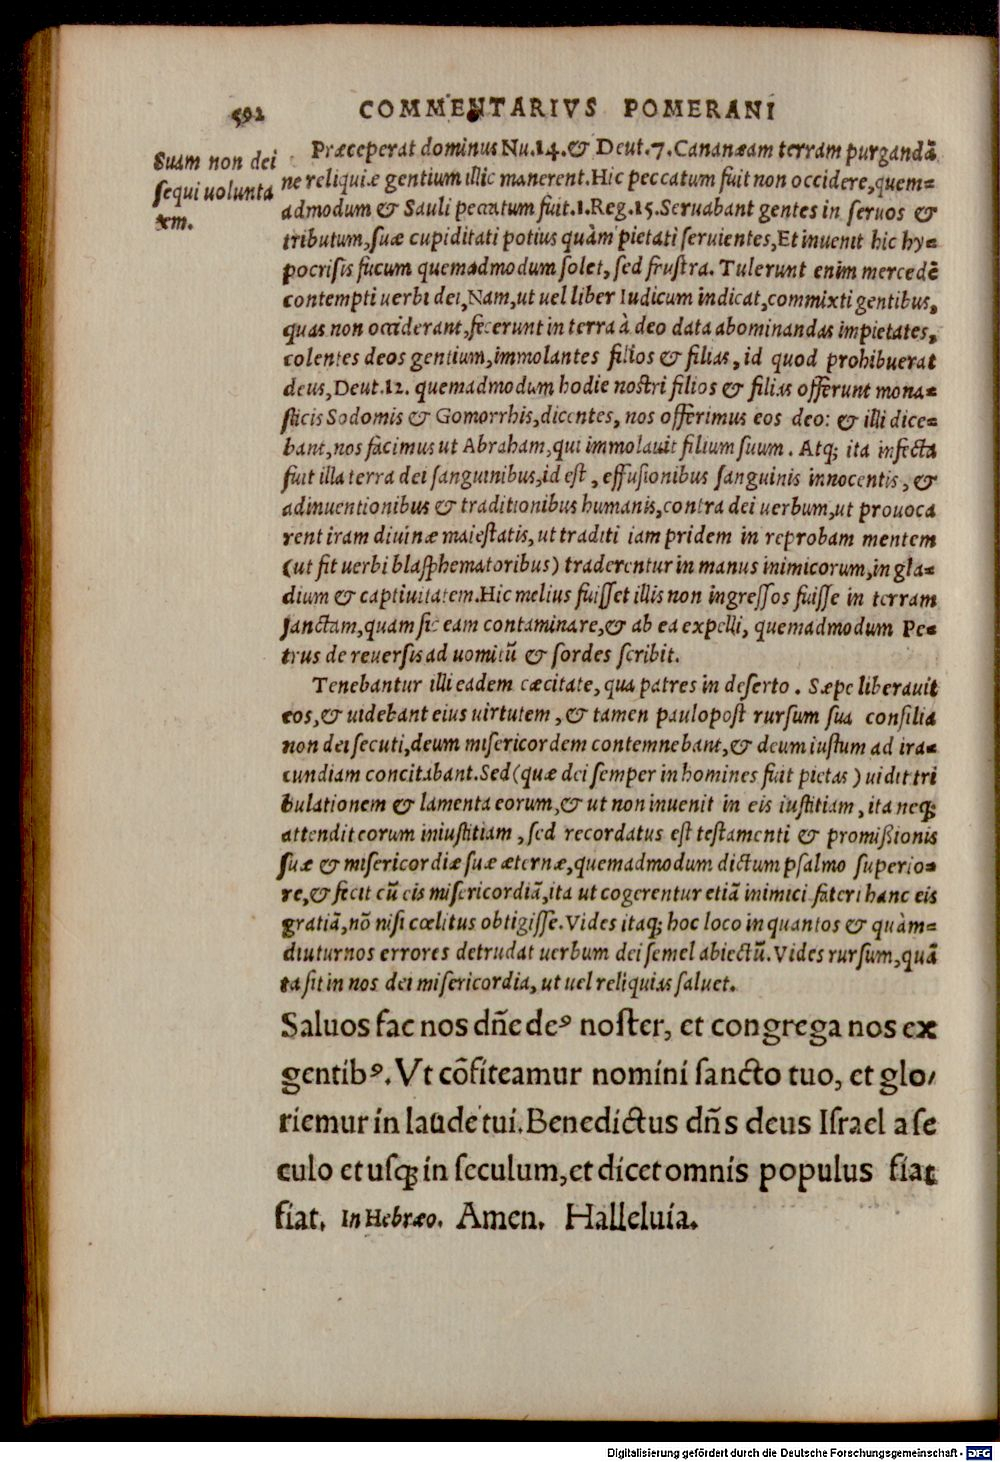 592 COMMENTARIVS POMERANI
Suam non dei
sequi uolunta
tem.
Præceperat dominus Nu.14.& Deut.7.Cananæam terram purgandã
ne reliquiæ gentium illic manerent.Hic peccatum fuit non occidere,quem=
admodum & Sauli peccatum fuit.1.Reg.15.Seruabant gentes in seruos &
tributum,suæ cupiditati potius quàm pietati seruientes,Et inuenit hic hy=
pocrisis fucum quemadmodum solet, sed frustra. Tulerunt enim mercedẽ
contempti uerbi dei,Nam,ut uel liber Iudicum indicat,commixti gentibus,
quas non occiderant,fecerunt in terra à deo data abominandas impietates,
colentes deos gentium,immolantes filios & filias, id quod prohibuerat
deus,Deut.12. quemadmodum hodie nostri filios & filias offerunt mona=
sticis Sodomis & Gomorrhis,dicentes, nos offerimus eos deo: & illi dice=
bant,nos facimus ut Abraham,qui immolauit filium suum. Atq; ita infecta
fuit illa terra dei sanguinibus,id est, effusionibus sanguinis innocentis, &
adinuentionibus & traditionibus humanis,contra dei uerbum,ut prouoca
rent iram diuinæ maiestatis, ut traditi iam pridem in reprobam mentem
(ut fit uerbi blasphematoribus) traderentur in manus inimicorum,in gla=
dium & captiuitatem.Hic melius fuisset illis non ingressos fuisse in terram
sanctam,quam sic eam contaminare,& ab ea expelli, quemadmodum Pe=
trus de reuersis ad uomitũ & sordes scribit.
Tenebantur illi eadem cæcitate, qua patres in deserto. Sæpe liberauit
eos,& uidebant eius uirtutem, & tamen paulopost rursum sua consilia
non dei secuti,deum misericordem contemnebant,& deum iustum ad ira=
cundiam concitabant.Sed(quæ dei semper in homines fuit pietas) uidit tri
bulationem & lamenta eorum,& ut non inuenit in eis iustitiam, ita neq;
attendit eorum iniustitiam, sed recordatus est testamenti & promißionis
suæ & misericordiæ suæ æternæ,quemadmodum dictum psalmo superio=
re,& fecit cũ eis misericordiã,ita ut cogerentur etiã inimici fateri hanc eis
gratiã,nõ nisi cœlitus obtigisse.Vides itaq; hoc loco in quantos & quàm=
diuturnos errores detrudat uerbum dei semel abiectũ.Vides rursum,quã
ta sit in nos dei misericordia, ut uel reliquias saluet.
Saluos fac nos dñe deꝰ noster, et congrega nos ex
gentibꝰ. Vt cõfiteamur nomini sancto tuo, et glo/
riemur in laude tui. Benedictus dñs deus Israel a se
culo et usq; in seculum,et dicet omnis populus fiat
fiat. In Hebræo. Amen. Halleluia.
Digitalisierung gefördert durch die Deutsche Forschungsgemeinschaft - DFG